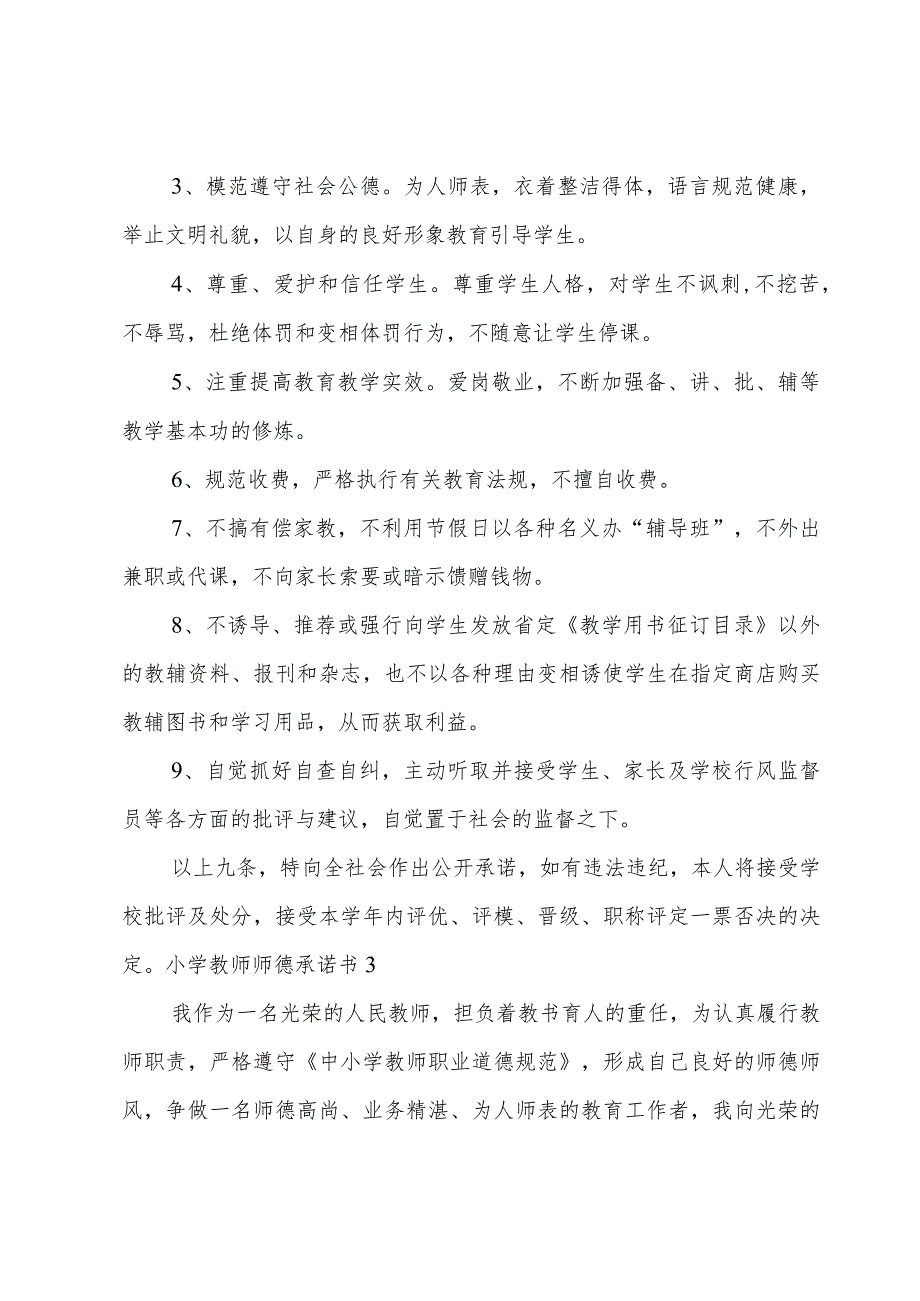 3、模范遵守社会公德。为人师表，衣着整洁得体，语言规范健康，
举止文明礼貌，以自身的良好形象教育引导学生。
4、尊重、爱护和信任学生。尊重学生人格，对学生不讽刺,不挖苦，
不辱骂，杜绝体罚和变相体罚行为，不随意让学生停课。
5、注重提高教育教学实效。爱岗敬业，不断加强备、讲、批、辅等
教学基本功的修炼。
6、规范收费，严格执行有关教育法规，不擅自收费。
7、不搞有偿家教，不利用节假日以各种名义办“辅导班”，不外出
兼职或代课，不向家长索要或暗示馈赠钱物。
8、不诱导、推荐或强行向学生发放省定《教学用书征订目录》以外
的教辅资料、报刊和杂志，也不以各种理由变相诱使学生在指定商店购买
教辅图书和学习用品，从而获取利益。
9、自觉抓好自查自纠，主动听取并接受学生、家长及学校行风监督
员等各方面的批评与建议，自觉置于社会的监督之下。
以上九条，特向全社会作出公开承诺，如有违法违纪，本人将接受学
校批评及处分，接受本学年内评优、评模、晋级、职称评定一票否决的决
定。小学教师师德承诺书 3
我作为一名光荣的人民教师，担负着教书育人的重任，为认真履行教
师职责，严格遵守《中小学教师职业道德规范》，形成自己良好的师德师
风，争做一名师德高尚、业务精湛、为人师表的教育工作者，我向光荣的